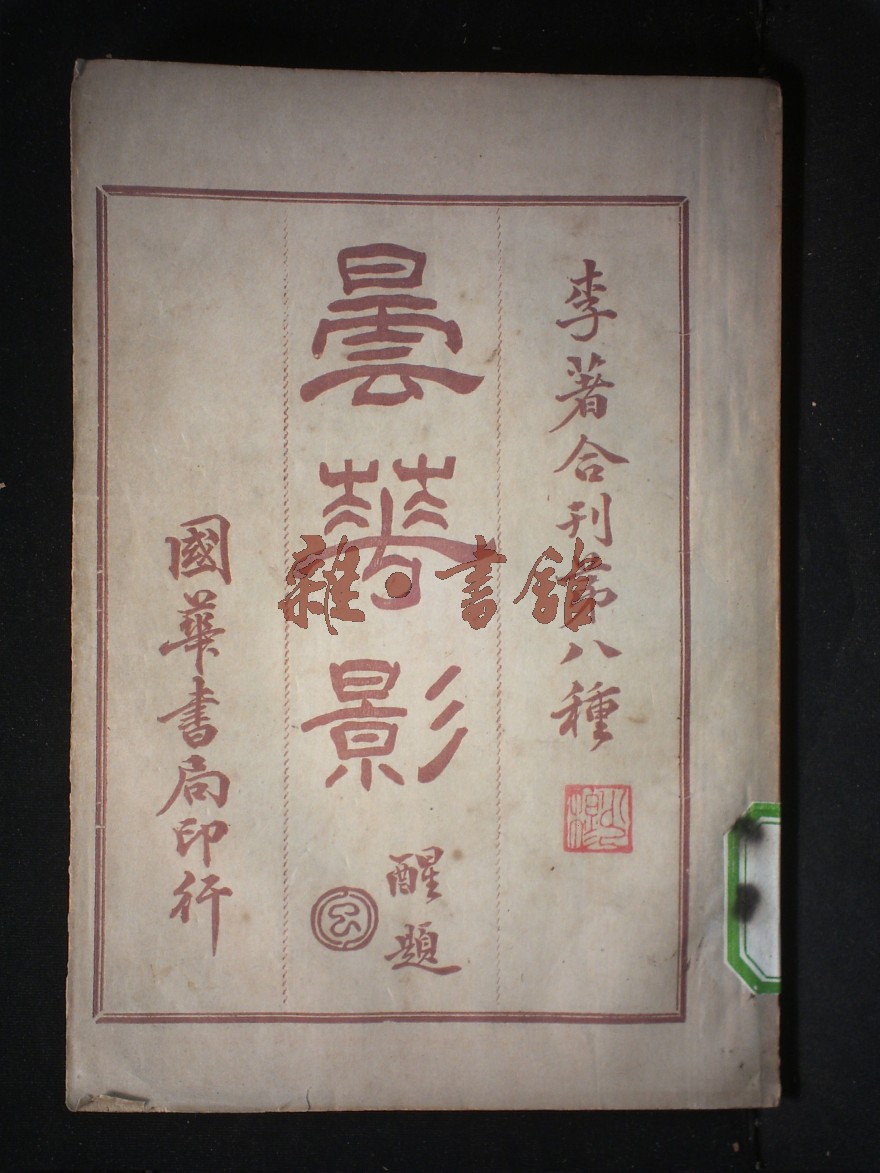 李著合刊第八種
曇華影
醒題
國華書局印行
雜·書館